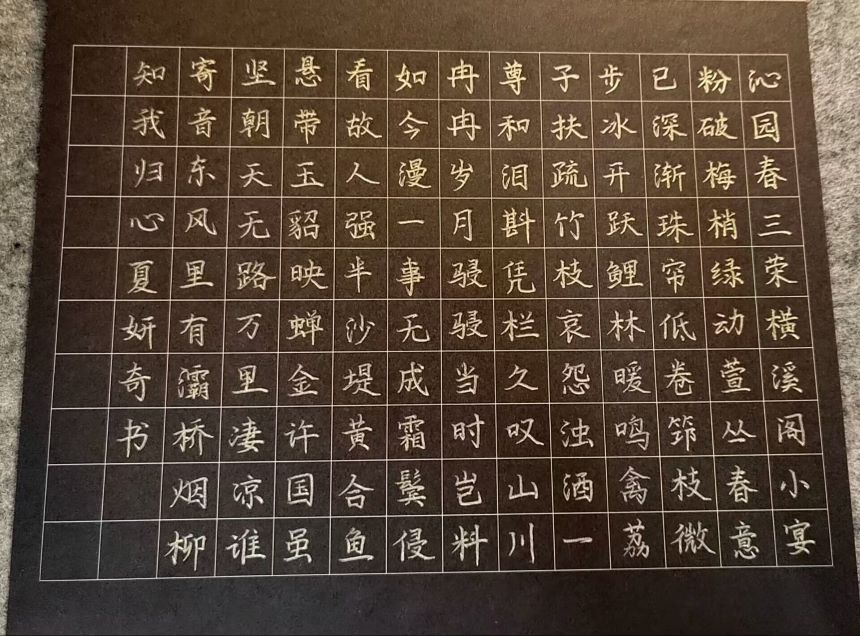 沁园春三荣横溪阁小宴
粉破梅梢绿动萱丛春意
已深渐珠帘低卷筇枝微
步冰开跃鲤林暖鸣禽荔
子扶疏竹枝哀怨浊酒一
尊和泪斟凭栏久叹山川
冉冉岁月骎骎当时岂料
如今漫一事无成霜鬓侵
看故人强半沙堤黄合鱼
悬带玉貂映蝉金许国虽
坚朝天无路万里凄凉谁
寄音东风里有灞桥烟柳
知我归心夏妍奇书